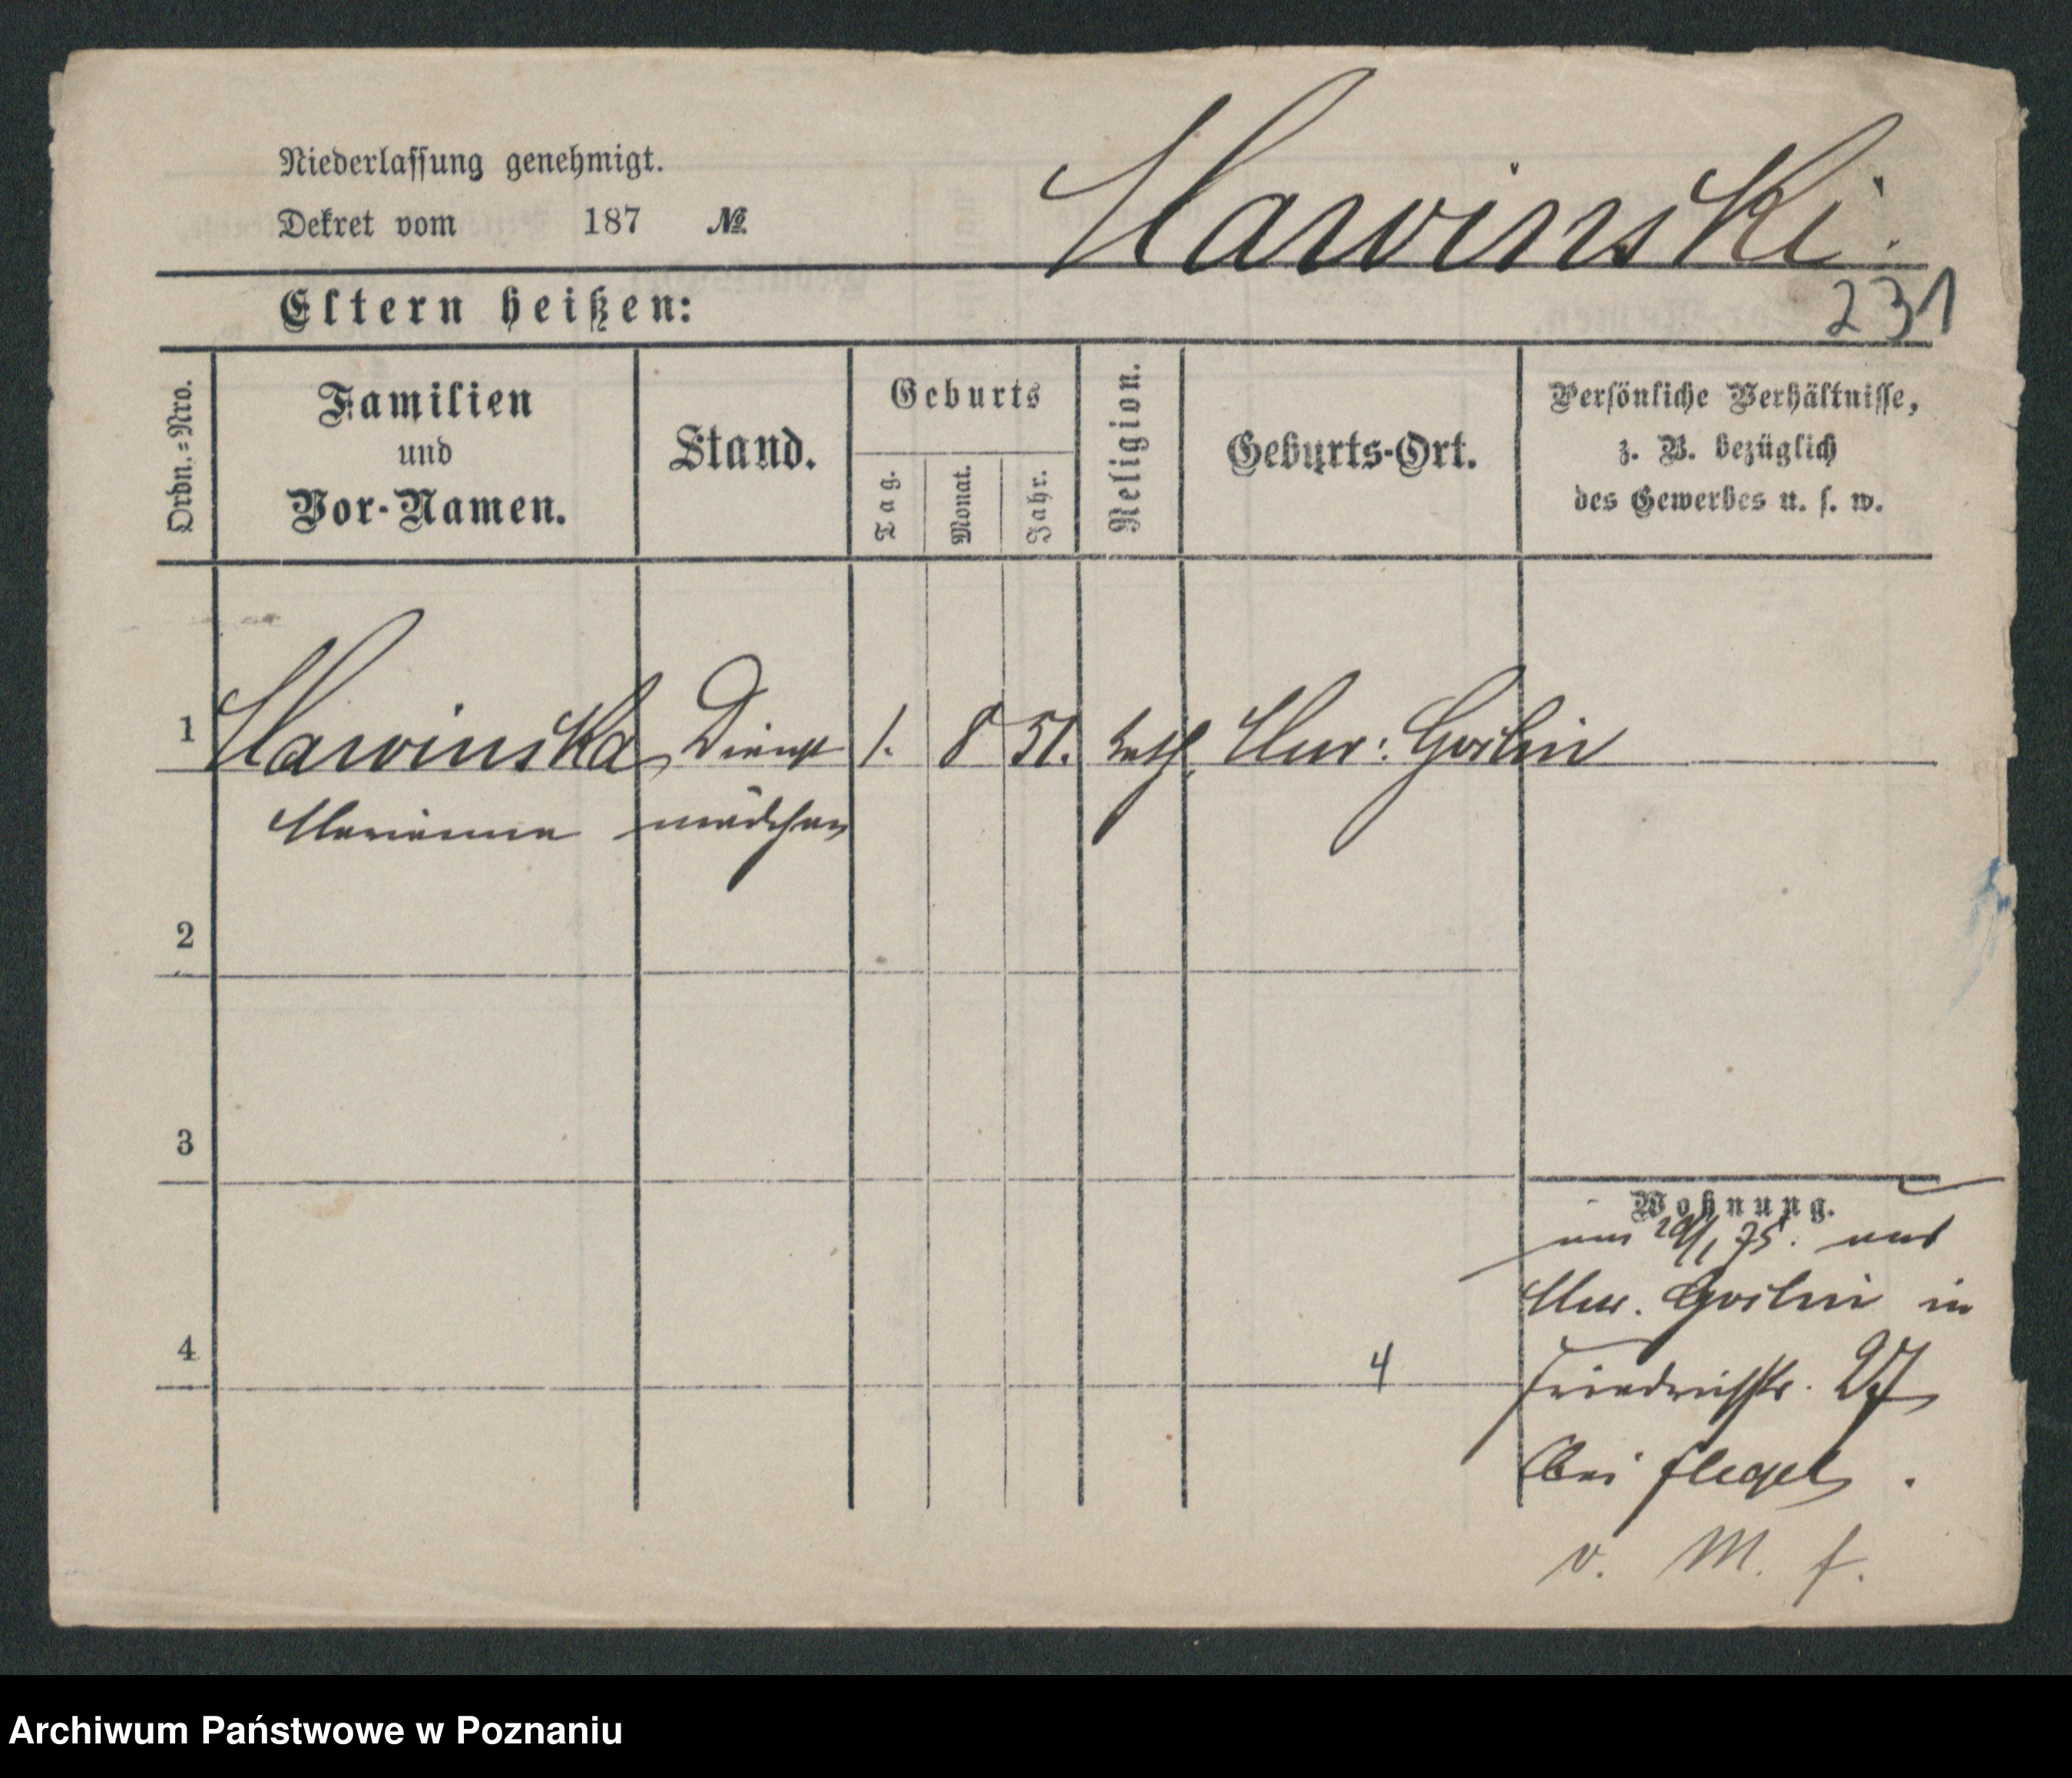 Niederlassung genehmigt.
Dekret vom 187 №
Hawinski.
231
Eltern heißen:
Ordn.=Nro.
Familien
und
Vor-Namen.
Stand.
Geburts
Tag.
Monat.
Jahr.
Religion.
Geburts-Ort.
Persönliche Verhältnisse,
z. B. bezüglich
des Gewerbes u. s. w.
1 Hawinska Dienst 1. 8 51. kath. Mur: Goslin
Marianna mädchen
2
3
Wohnung.
am 20/1 75. aus
Mur. Goslin in
4
4
Friedrichstr. 27
bei Flegel.
v. M. f.
Archiwum Państwowe w Poznaniu